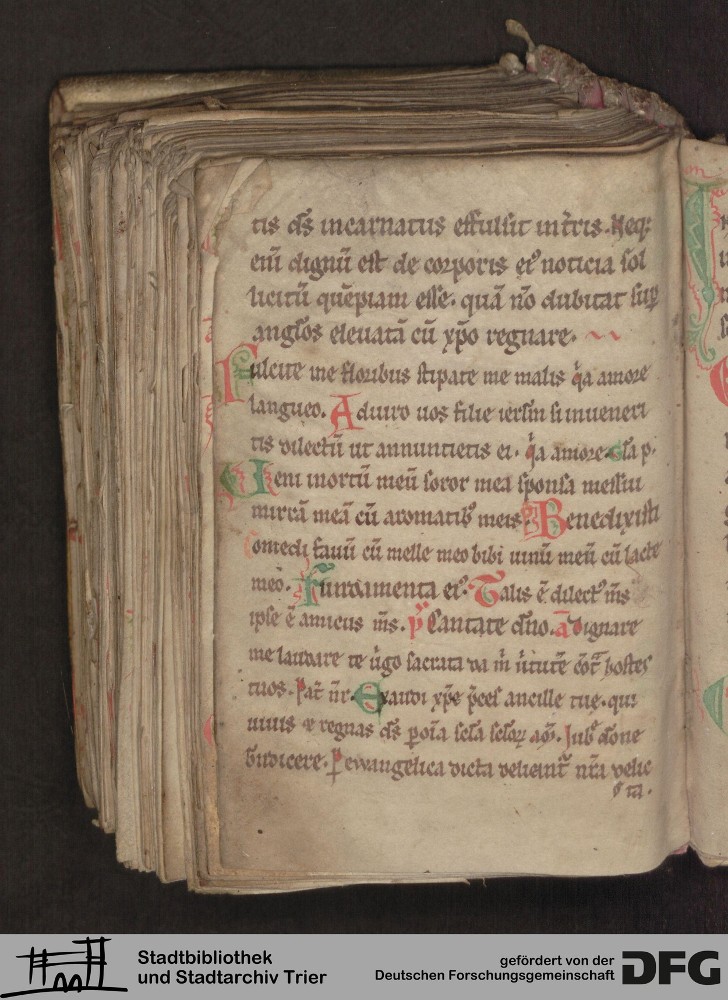 tis ds̄ incarnatus effulsit in t̄ris. Neq;
eni̅ dignu̅ est de corporis ei᷒ noticia sol
licitu̅ que̅piam esse. qua̅ no̅ dubitat sup̱
anglōs eleuata̅ cu̅ xp̅o regnare.
Fulcite me floribus stipate me malis q̇a amore
langueo. Adiuro uos filie ierl̅m si inueneri
tis dilectu̅ ut annuntietis ei. q̇a amore. Gl̅a p.
Ueni in ortu̅ meu̅ soror mea sponsa messui
mirra̅ mea̅ cu̅ aromatib᷒ meis. Benedixisti
Comedi fauu̅ cu̅ melle meo bibi uinu̅ meu̅ cu̅ lacte
meo. Fundamenta ei᷒. Talis e̅ dilect᷒ m̅s
ipse e̅ amicus m̅s. p̅s Cantate dn̅o. a̅ Dignare
me laudare te u̇go sacrata da m̊ u̇tute̅ co̅t᷑ hostes
tuos. Pat̅ n̅r. Exaudi xp̅e p̅ces ancille tue. qui
uiuis & regnas ds̄ p̱ o̅ia sc̅la sc̅lo᷒ꝝ am̅. Iub᷒ do̅ne
bn̅dicere. P̱ ewangelica dicta deleant᷑ n̅ra delic
ta.
Stadtbibliothek
und Stadtarchiv Trier
gefördert von der
Deutschen Forschungsgemeinschaft
DFG